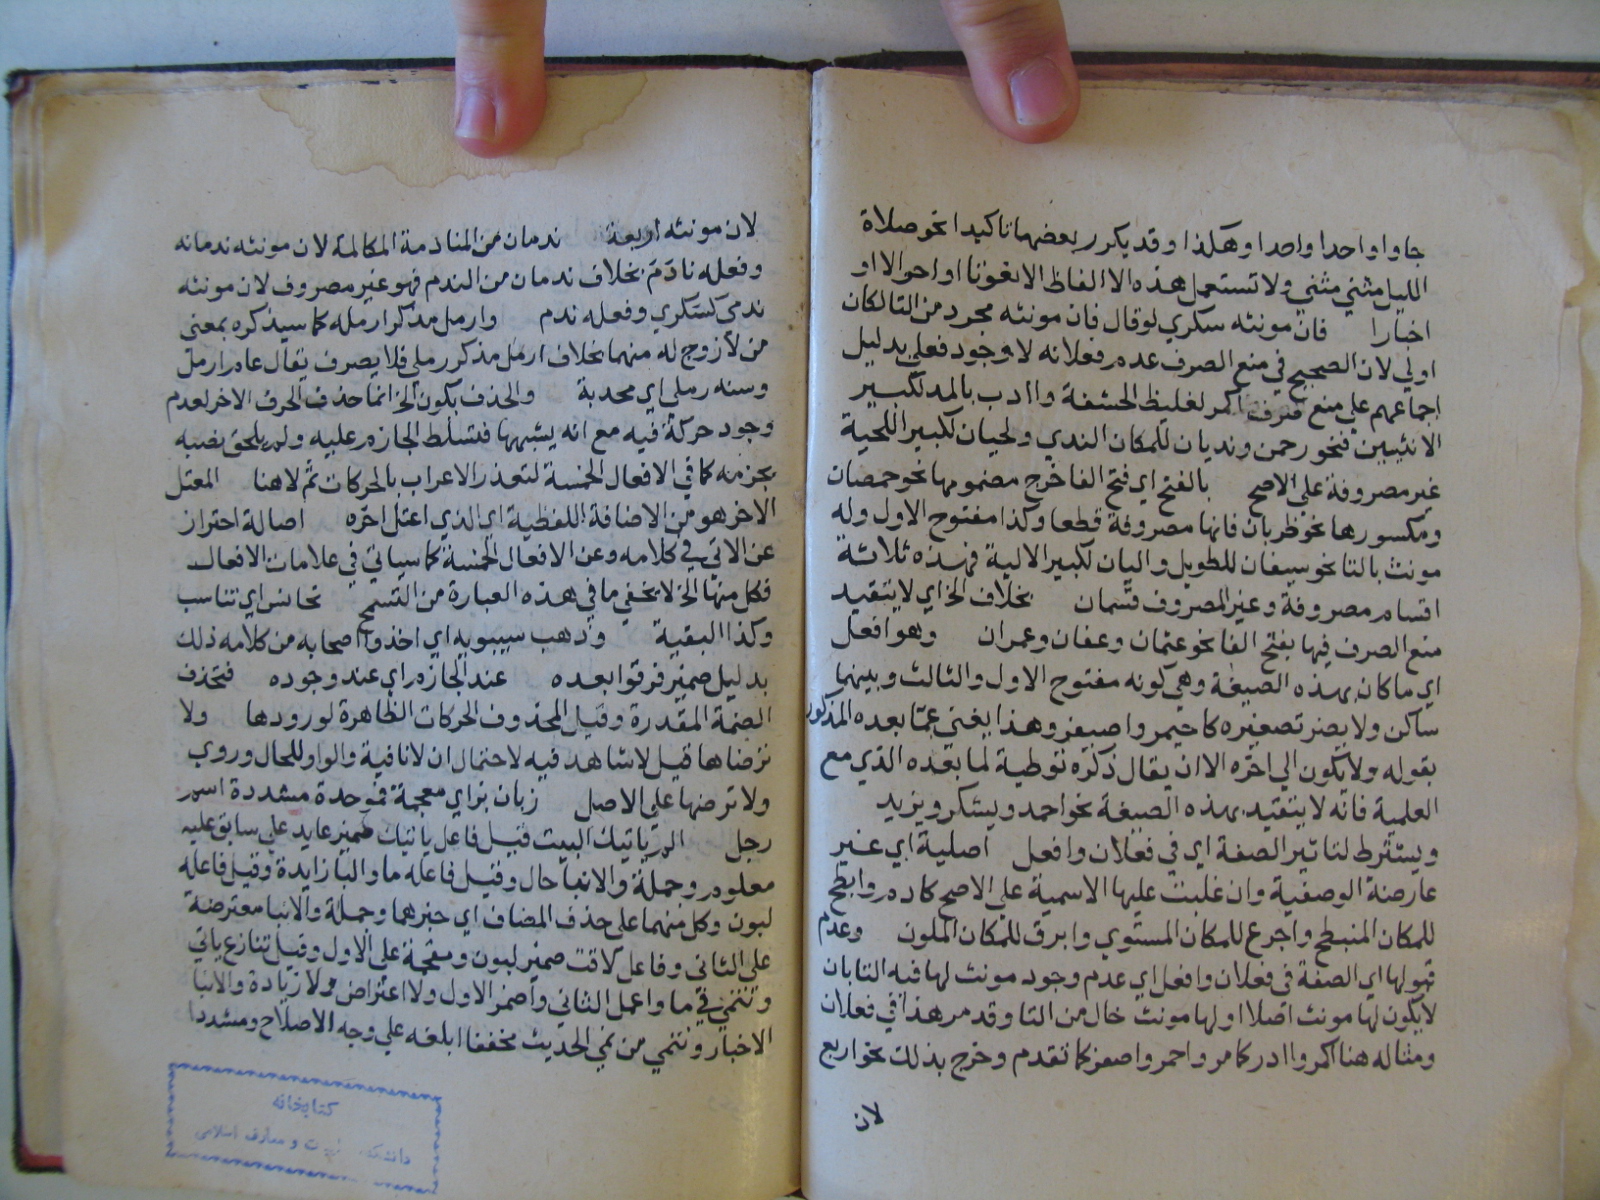 جاوا واحدا واحدا وهكذا وقد يكرر بعضها تاكيدا نحو صلاة
الليل مثني مثني ولا تستعمل هذه الا الفاظ الا نعوتا او احوالا او
اخبارا فان مونثه سكري لو قال فان مونثه مجرد من التا لكان
اولي لان الصحيح في منع الصرف عدم فعلانه لا وجود فعلي بدليل
اجماعهم علي منع صرف اكمر لغليظ الحشفة واادب بالمد لكبير
الانثيين فنحو رحمن ونديان للمكان الندي ولحيان لكبير اللحية
غير مصروفة علي الاصح بالفتح اي فتح الفا خرج مضمومها نحو حمصان
ومكسورها نحو ظربان فانها مصروفة قطعا وكذا مفتوح الاول وله
مونث بالتا نحو سيفان للطويل واليان لكبير الالية فهذه ثلاثة
اقسام مصروفة وغير المصروف قسمان بخلاف الخ اي لا يتقيد
منع الصرف فيها بفتح الفا نحو عثمان وعفان وعمران وهو افعل
اي ما كان بهذه الصيغة وهي كونه مفتوح الاول والثالث وبينهما
ساكن ولا يضر تصغيره كاحيمر واصيفر وهذا يغني عما بعده المذكور
بقوله ولا تكون الي اخره الا ان يقال ذكره توطية لما بعده الذي مع
العلمية فانه لا يتقيد بهذه الصيغة نحو احمد ويشكر ويزيد
ويشترط لتاثير الصفة اي في فعلان وافعل اصلية اي غير
عارضة الوصفية وان غلبت عليها الاسمية علي الاصح كادهم وابطح
للمكان المنبطح واجرع للمكان المستوي وابرق للمكان الملون وعدم
قبولها اي الصفة في فعلان وافعل اي عدم وجود مونث لها فيه التا بان
لا يكون لها مونث اصلا او لها مونث خال من التا وقد مر هذا في فعلان
ومثاله هنا اكمر واادر كما مر واحمر واصفر كما تقدم وخرج بذلك نحو اربع
لان
لان مونثه اربعة ندمان من المنادمة المكالمة لان مونثه ندمانه
وفعله نادم بخلاف ندمان من الندم فهو غير مصروف لان مونثه
ندمي كسكري وفعله ندم وارمل مذكر ارمله كما سيذكره بمعني
من لا زوج له منهما بخلاف ارمل مذكر رملي فلا يصرف يقال عام ارمل
وسنه رملي اي محدبة والحذف يكون الخ انما حذف الحرف الاخر لعدم
وجود حركة فيه مع انه يشبهها فتسلط الجازم عليه ولم يلحق نصبه
بجزمه كما في الافعال الخمسة لتعذر الاعراب بالحركات ثم لا هنا المعتل
الاخر هو من الاضافة اللفظية اي الذي اعتل اخره اصالة احتراز
عن الاتي في كلامه وعن الافعال الخمسة كما سياتي في علامات الافعال
فكل منها الخ لا يخفي ما في هذه العبارة من التسمح تجانس اي تناسب
وكذا البقية وذهب سيبويه اي اخذوا اصحابه من كلامه ذلك
بدليل ضمير فرقوا بعده عند الجازم اي عند وجوده فتحذف
الضمة المقدرة وقيل المحذوف الحركات الظاهرة لورودها ولا
ترضاها قيل لا شاهد فيه لاحتمال ان لا نافية والواو للحال وروي
ولا ترضها علي الاصل زبان بزاي معجمة فموحدة مشددة اسم
رجل الم ياتيك البيت قيل فاعل ياتيك ضمير عايد علي سابق عليه
معلوم وجملة والانبا حال وقيل فاعله ما والبا زايدة وقيل فاعله
لبون وكل منهما علي حذف المضاف اي خبرهما وجملة والانبا معترضة
علي الثاني وفاعل لاقت ضمير لبون ومقحمة علي الاول وقيل تنازع ياتي
وتنمي في ما واعمل الثاني واضمر الاول ولا اعتراض ولا زيادة والانبا
الاخبار وتنمي من نمي الحديث مخففا ابلغه علي وجه الاصلاح ومشددا
كتابخانه
دانشكده الهيات و معارف اسلامى